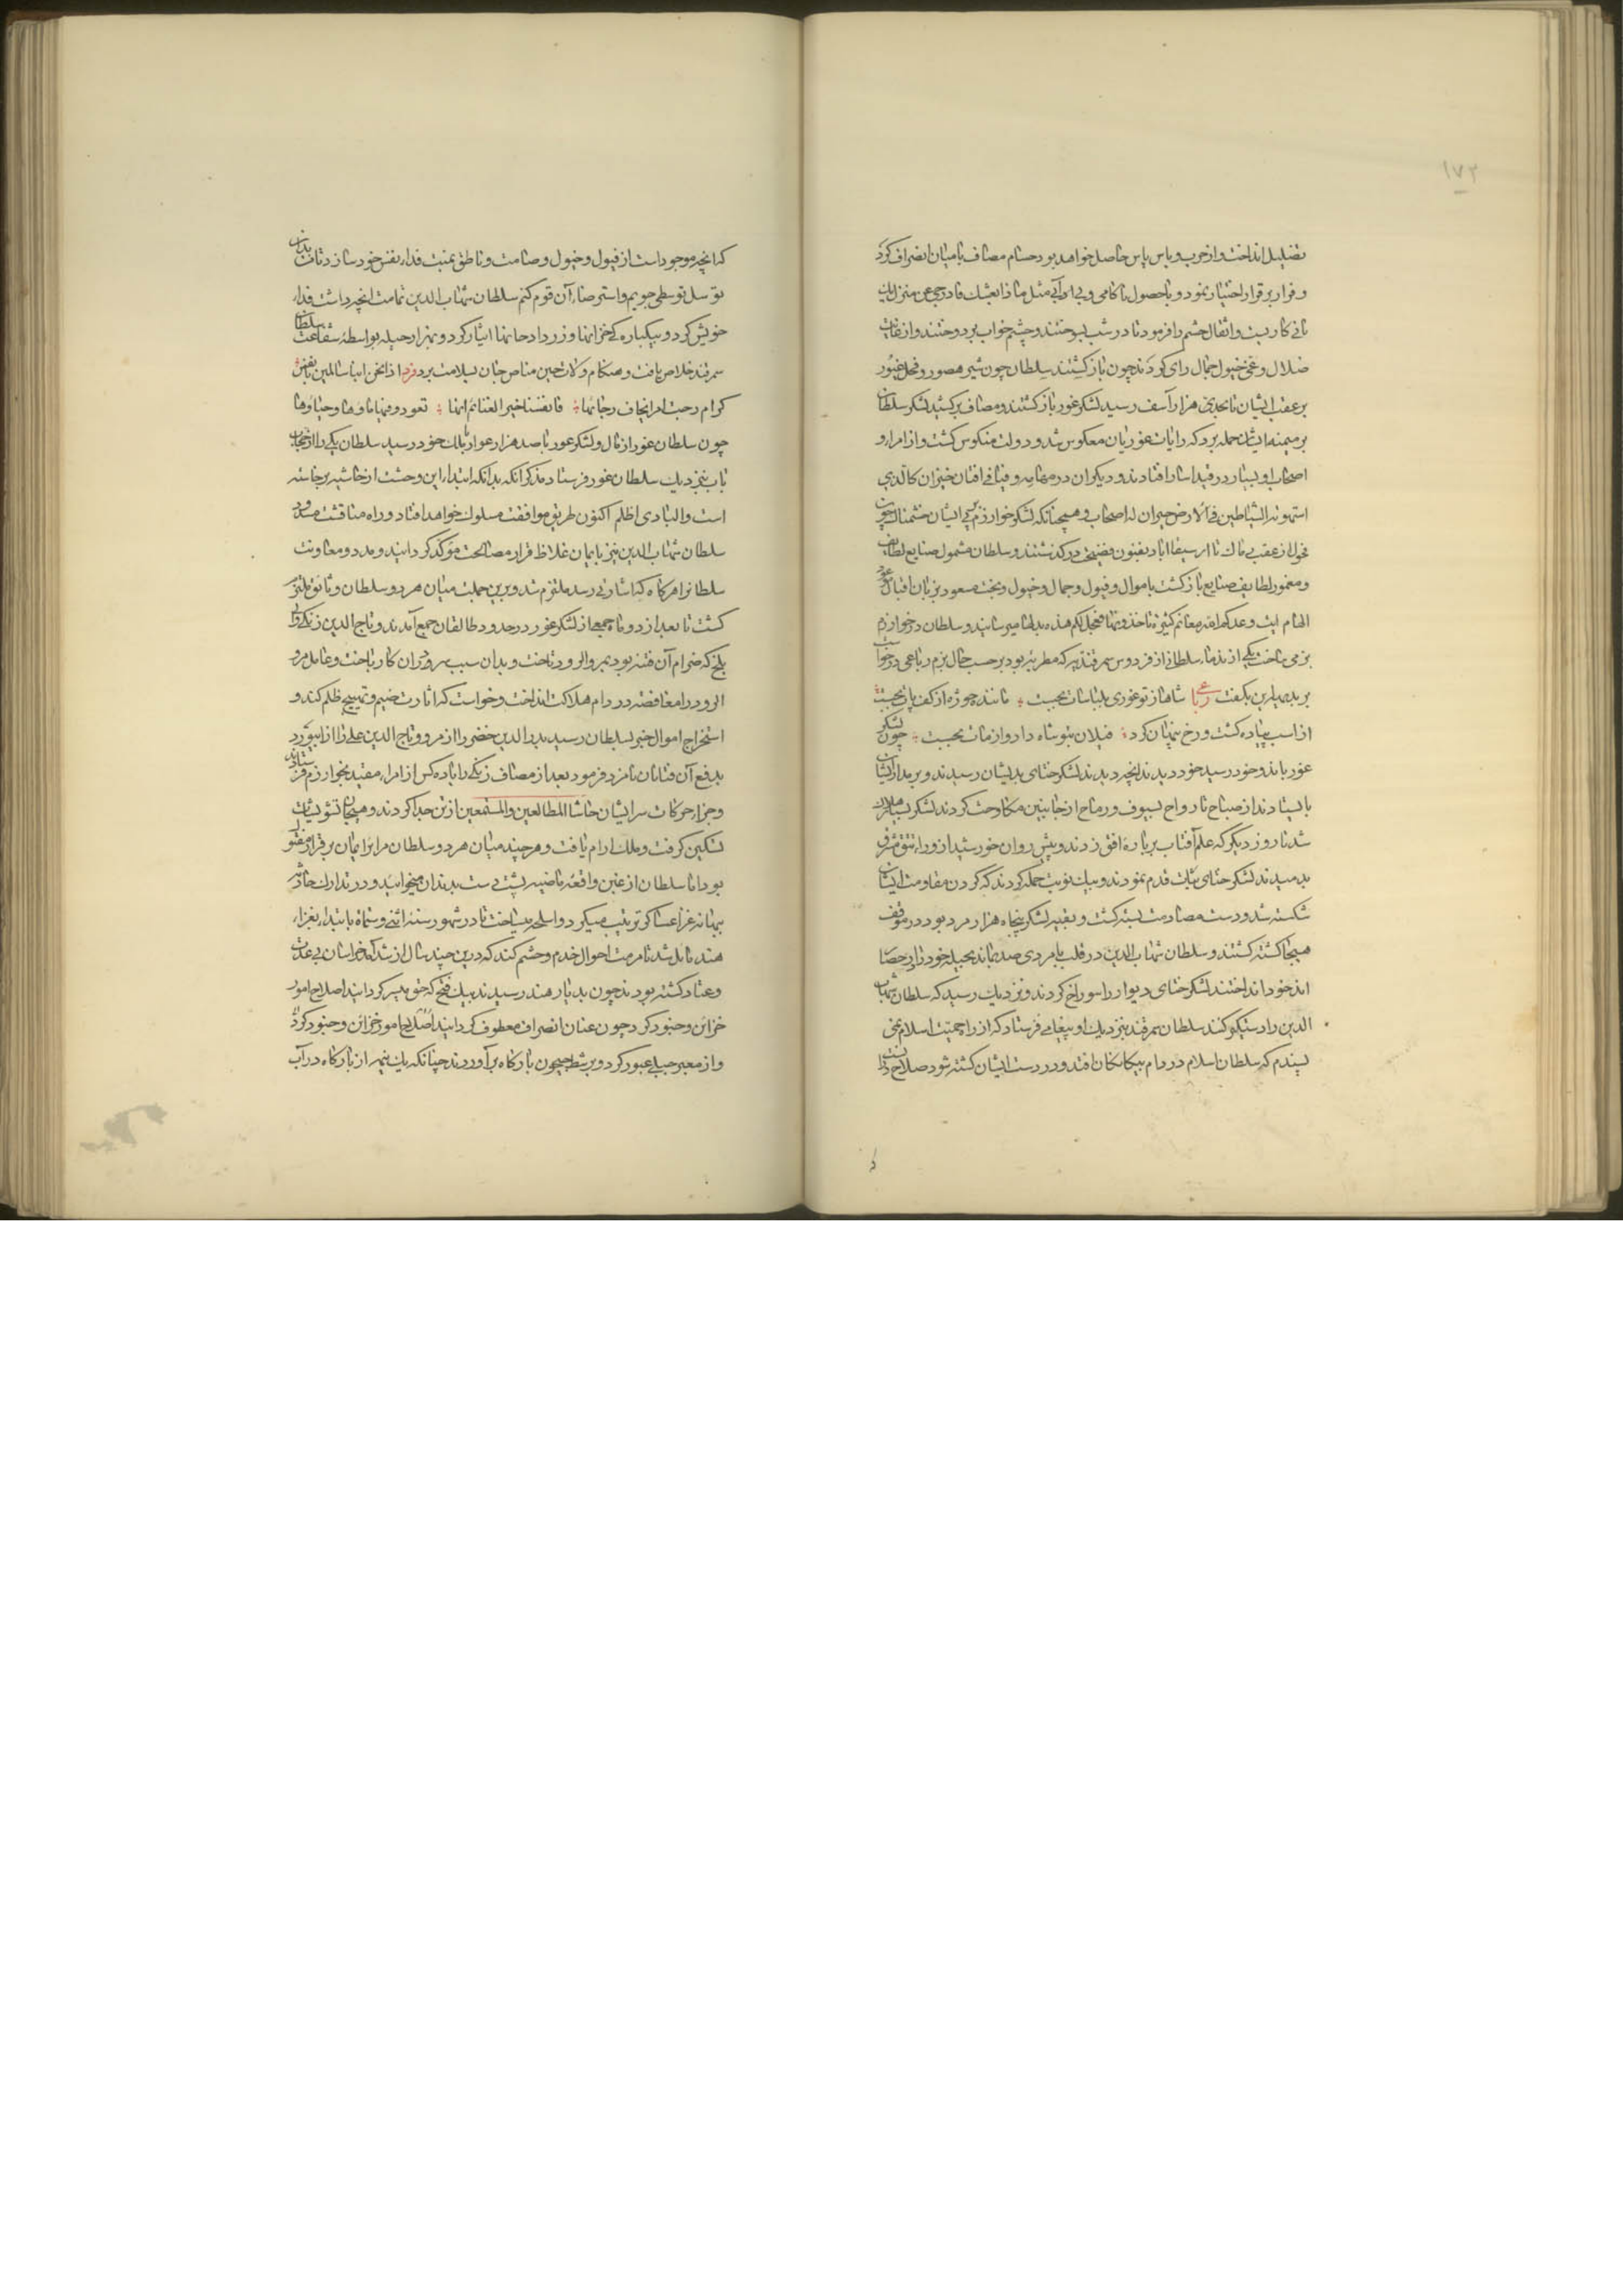 ۱۷۲
تضلیل انداخت و از حرب و باس یاس حاصل خواهد بود حسام مصاف با میان انصراف کرد
و فرار بر قرار اختیار نمود و با حصول ناکامی و بی مثل ما ذا بعشك فادرجی عن منزل لیك
ثانی کار بست و اثقال حشم را فرمود تا در شب بسوختند و چشم خواب بر دوختند و از غایت
ضلال و غی خیول جمال را پی کردند چون باز گشتند سلطان چون شیر هصور و فحل غیور
بر عقب ایشان تا بحدی هزار آسف رسید لشکر غور باز گشتند و مصاف بر کشید لشکر سلطان
بر میمنه ایشان حمله برد که رایات غوریان معکوس شد و دولت منکوس گشت و از امرا و
اصحاب او بسیار در قید اسار افتادند و دیگران در مهامه و فیافی افتان خیزان کالذی
استهوته الشیاطین فی الارض حیران له اصحاب و همچنانکه لشکر خوارزم بر پی ایشان خشمناك چون
فحول از عقب بی باك تا از سیفاباد بفنون فضیحت در گذشتند و سلطان مشمول صنایع لطایف
و مغمور لطایف صنایع باز گشت با اموال و فیول و جمال و خیول و بخت مسعود بزبان اقبال
الهام ایت وعدکم الله مغانم کثیرة تاخذونها فعجل لکم هذه بدلها میرسانید و سلطان در خوارزم
بزمی ساخت یکی از ندماء سلطانی از فردوس سمرقندیه که مطربه بود بر حسب حال بزم رباعی درخواست
بر بدیهه این بگفت رباعی شاها ز تو غوری بلباسات بجست ؛ مانندهٔ جوژه از کف پات بجست
از اسب پیاده گشت و رخ پنهان کرد ؛ فیلان بتو شاه داد و از مات بجست ؛ چون لشکر
غور باندخود رسید خود دیدند انچه دیدند لشکر ختای بدیشان رسیدند و بر مدار ایشان
بایستادند از صباح تا رواح بسیوف و رماح از جانبین مکاوحت کردند لشکر بسیار هلاك
شد تا روز دیگر که علم آفتاب بر بارهٔ افق زدند و پیش روان خورشید از وراء تتق مشرق
بدمیدند لشکر ختای ثبات قدم نمودند و بیك نوبت حمله کردند که گردن مقاومت ایشان
شکسته شد و دست مصادمت بسته گشت و بقیه لشکر پنجاه هزار مرد بود در موقف
هیجا کشته گشتند و سلطان شهاب الدین در قلب با مردی صد بماند بحیله خود را در حصار
اندخود انداختند لشکر ختای دیوار را سوراخ کردند و نزدیك رسید که سلطان شهاب
الدین را دستگیر کنند سلطان سمرقند بنزدیك او پیغامی فرستاد که از راه حمیت اسلام نمی
پسندم که سلطان اسلام در دام بیگانگان افتد و در دست ایشان کشته شود صلاح دانست
که انچه موجود است از فیول و خیول و صامت و ناطق بمنیت فداء نفس خود سازد تا من بدان
توسل توسطی جویم و استرضاء آن قوم کنم سلطان شهاب الدین تمامت انچه داشت فداء
خویش کرد و بیکباره کی خزاینها و زرادخانها ایثار کرد و بهزار حیله بواسطهٔ شفاعت سلطان
سمرقند خلاص یافت و هنگام ولات حین مناص جان بسلامت برد فرد اذا نحن ابنا سالمین بانفس
کرام رجت امرا فخاف رجاءها ؛ فانفسنا خیر الغنائم انها ؛ تعود و فیها ماءها و حیاوها
چون سلطان غور از قال و لشکر غور با صد هزار عوار بملك خود رسید سلطان یکی را از حجاب
باب بنزدیك سلطان غور فرستاد مذکر آنکه بدانکه ابتداء این وحشت از حاشیه برخاسته
است و البادی اظلم اکنون طریق موافقت مسلوك خواهد افتاد و راه مناقشت مسدود
سلطان شهاب الدین نیز بایمان غلاظ قرار مصالحت مؤکد گردانید و مدد و معاونت
سلطانرا هرگاه که اشارتی رسد ملتزم شد و برین جملت میان هر دو سلطان وثاقق ملتزم
گشت تا بعد از دو ماه جمعی از لشکر غور در حدود طالقان جمع آمدند و تاج الدین زنگی والی
بلخ که ضرام آن فتنه بود بمرو الرود تاخت و بدان سبب سر در آن کار باخت و عامل مرو
الرود را مغافصه در دام هلاکت انداخت و خواست که اثارت ضیم و تهییج ظلم کند و
استخراج اموال خبر بسلطان رسید بدر الدین خضر را از مرو و تاج الدین علی را از ابیورد
بدفع آن فتانان نامزد فرمود بعد از مصاف زنگی را با ده کس از امراء مقید بخوارزم فرستادند
و جزاء حرکات سر ایشان حاشا المطالعین و المستمعین از تن جدا کردند و هیجان تشویشات
تسکین گرفت و ملك ارام یافت و هر چند میان هر دو سلطان مرایر ایمان بر قرار مفتول
بود اما سلطان از غبن واقعهٔ ماضیه پشت دست بدندان میخوایید و در تدارك حادثه
ببهانه غزا عساکر ترتیب میکرد و اسلحه میساخت تا در شهور سنه اثنی و ستمایه بابتداء بغزاء
هند مایل شد تا مرمت احوال خدم و حشم کند که درین چند سال از شدآمد خراسان بی عدت
و عتاد گشته بودند چون بدیار هند رسیدند بیك فتح که حق میسر گردانید اصلاح امور
خزائن و جنود کرد چون عنان انصراف معطوف گردانید اصلاح امور خزائن و جنود کرد
و از معبر جیلی عبور کرد و بر شط جیحون بارگاه برآوردند چنانکه یك نیمه از بارگاه در آب